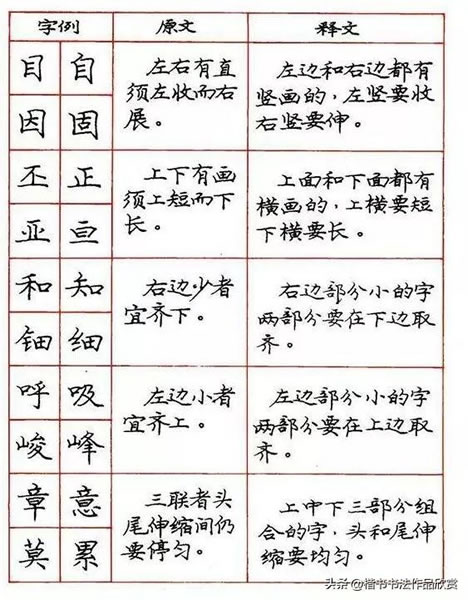 字例 原文 释文
目 自
因 固
左右有直
须左收而右
展。
左边和右边都有
竖画的,左竖要收
右竖要伸。
丕 正
亚 亘
上下有画
须上短而下
长。
上面和下面都有
横画的,上横要短
下横要长。
和 知
钿 细
右边少者
宜齐下。
右边部分小的字
两部分要在下边取
齐。
呼 吸
峻 峰
左边小者
宜齐上。
左边部分小的字
两部分要在上边取
齐。
章 意
莫 累
三联者头
尾伸缩间仍
要停匀。
上中下三部分组
合的字,头和尾伸
缩要均匀。
头条@楷书书法作品欣赏